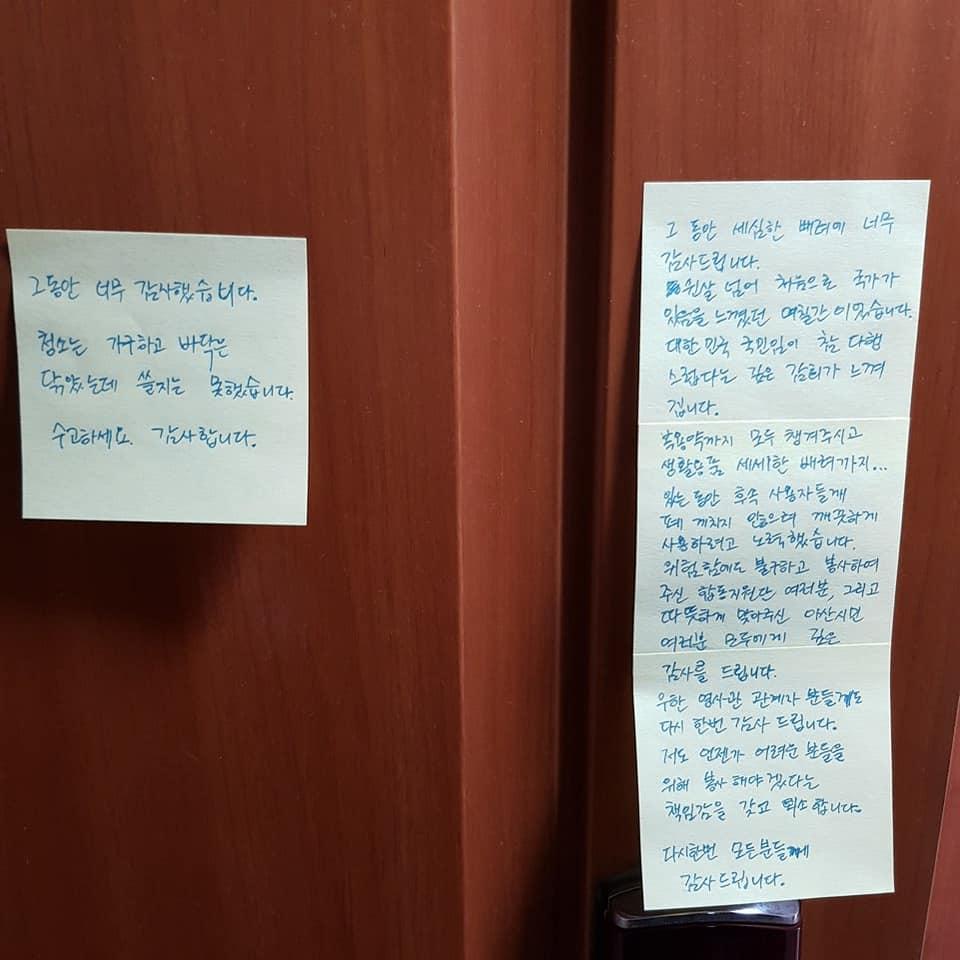 그동안 너무 감사했습니다.
청소는 가구하고 바닥은
닦았는데 쓸지는 못했습니다.
수고하세요. 감사합니다.
그 동안 세심한 배려에 너무
감사드립니다.
쉰살 넘어 처음으로 국가가
있음을 느꼈던 며칠간이었습니다.
대한민국 국민임이 참 다행
스럽다는 깊은 감회가 느껴
집니다.
복용약까지 모두 챙겨주시고
생활용품 세세한 배려까지...
있는 동안 후속 사용자들게
폐 끼치지 않으려 깨끗하게
사용하려고 노력했습니다.
위험함에도 불구하고 봉사하여
주신 합동지원단 여러분, 그리고
따뜻하게 맞아주신 아산시민
여러분 모두에게 깊은
감사를 드립니다.
우한 영사관 관계자 분들께도
다시 한번 감사 드립니다.
저도 언젠가 어려운 분들을
위해 봉사 해야겠다는
책임감을 갖고 퇴소합니다.
다시한번 모든분들께
감사드립니다.